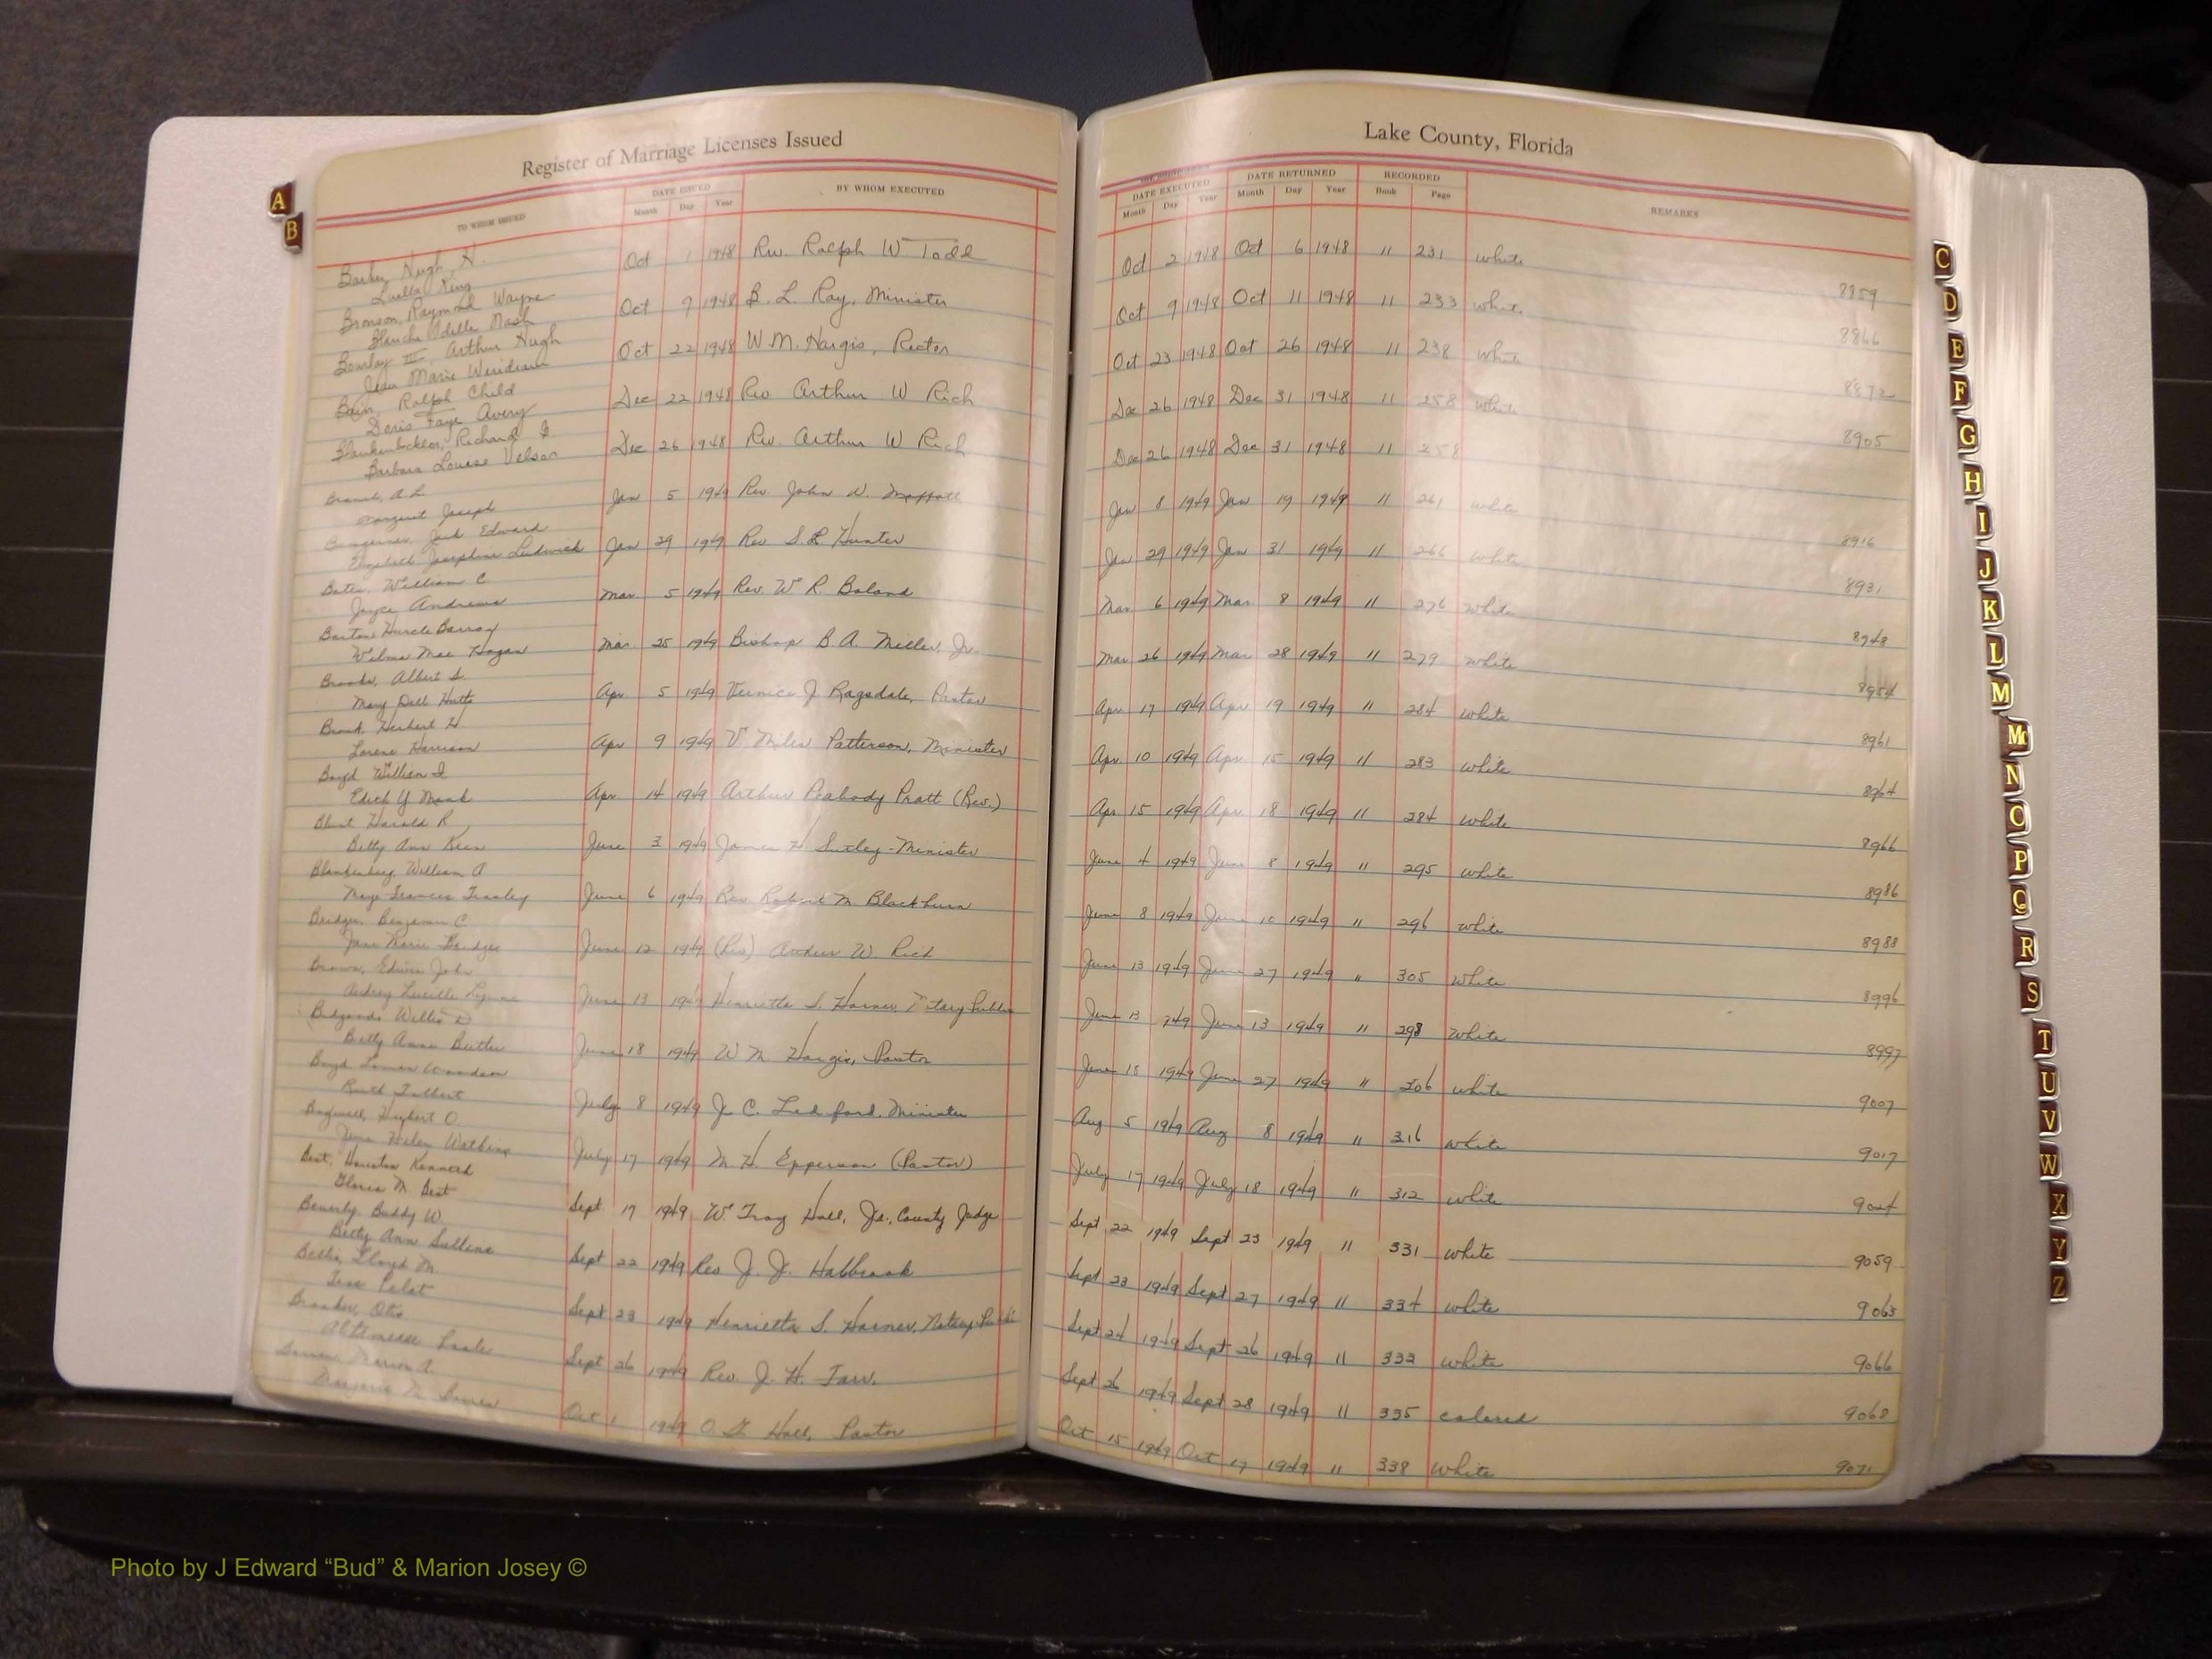 Register of Marriage Licenses Issued
Lake County, Florida
TO WHOM ISSUED
DATE ISSUED
Month Day Year
BY WHOM EXECUTED
DATE EXECUTED
Month Day Year
DATE RETURNED
Month Day Year
RECORDED
Book Page
REMARKS
A
B
Hugh H. Oct 1 1948 Rev. Ralph W Todd Oct 2 1948 Oct 6 1948 11 231 white
Luella King 8859
Bronson, Raymond Wayne Oct 9 1948 B. L. Ray, Minister Oct 9 1948 Oct 11 1948 11 233 white
Blanche Odelle Nash 8866
III Arthur Hugh Oct 22 1948 W M. Hargis, Rector Oct 23 1948 Oct 26 1948 11 238 white
Jean Marie 8872
Bain, Ralph Child Dec 22 1948 Rev Arthur W Rich Dec 26 1948 Dec 31 1948 11 258 white
Doris Faye Avery 8905
Richard Dec 26 1948 Rev. Arthur W Rich Dec 26 1948 Dec 31 1948 11 258
Barbara Louise
A. L. Jan 5 1949 Rev. John W. Moffatt Jan 8 1949 Jan 19 1949 11 261 white
Margaret Joseph 8916
Jack Edward Jan 29 1949 Rev S. L Hunter Jan 29 1949 Jan 31 1949 11 266 white
Elizabeth Josephine Ludwick 8931
Bates, William C Mar. 5 1949 Rev. W R. Boland Mar 6 1949 Mar. 8 1949 11 276 white
Joyce Andrews 8948
Barton Mar. 25 1949 Bishop B. A. Miller, Jr. Mar 26 1949 Mar 28 1949 11 279 white
Wilma Mae Hogan 8954
Brooks, Albert S. Apr 5 1949 Vernice J Ragsdale, Pastor Apr 17 1949 Apr 19 1949 11 284 white
Mary Dell Hutto 8961
Herbert H Apr 9 1949 V Miles Patterson, Minister Apr. 10 1949 Apr 15 1949 11 283 white
Lorene Harrison 8964
Boyd William I Apr 14 1949 Arthur Peabody Pratt (Rev.) Apr 15 1949 Apr 18 1949 11 284 white
Edith Y Monk 8966
Harold R June 3 1949 James H Minister June 4 1949 June 8 1949 11 295 white
Betty Ann 8986
Blankenberg, William A June 6 1949 Rev Robert M. Blackburn June 8 1949 June 10 1949 11 296 white
Maye Frances 8988
Bridges, Benjamin C. June 12 1949 (Rev) Arthur W. Rich June 13 1949 June 27 1949 " 305 white
Jane Marie Bridges 8996
Brown, Edwin John June 13 1949 Henrietta S. Harner, Notary Public June 13 1949 June 13 1949 11 298 white
Audrey Lucille 8997
Willie D June 18 1949 W M Hargis, Pastor June 18 1949 June 27 1949 11 306 white
Betty Anne Butler 9007
Boyd July 8 1949 J. C. Ledford, Minister Aug 5 1949 Aug 8 1949 11 316 white
Ruth Talbert 9017
Bagwell, Hubert O. July 17 1949 M. H. Epperson (Pastor) July 17 1949 July 18 1949 11 312 white
Watkins 9024
Best, Houston Kenneth Sept 17 1949 W Troy Hall, Jr., County Judge Sept 22 1949 Sept 23 1949 11 331 white
Gloria M. Best 9059
Beverly, Buddy W. Sept 22 1949 Rev J. J. Halbrook Sept 23 1949 Sept 27 1949 11 334 white
Betty Ann 9063
Lloyd M Sept 23 1949 Henrietta S. Harner, Notary Public Sept 24 1949 Sept 26 1949 11 333 white
9066
Otis Sept 26 1949 Rev. J. H. Farr. Sept 26 1949 Sept 28 1949 11 335 colored
9068
Marion A. Oct 1 1949 Hall, Pastor Oct 15 1949 Oct 17 1949 11 338 white
Marjorie M. 9071
C
D
E
F
G
H
I
J
K
L
M
Mc
N
O
P
Q
R
S
T
U
V
W
X
Y
Z
Photo by J Edward “Bud” & Marion Josey ©